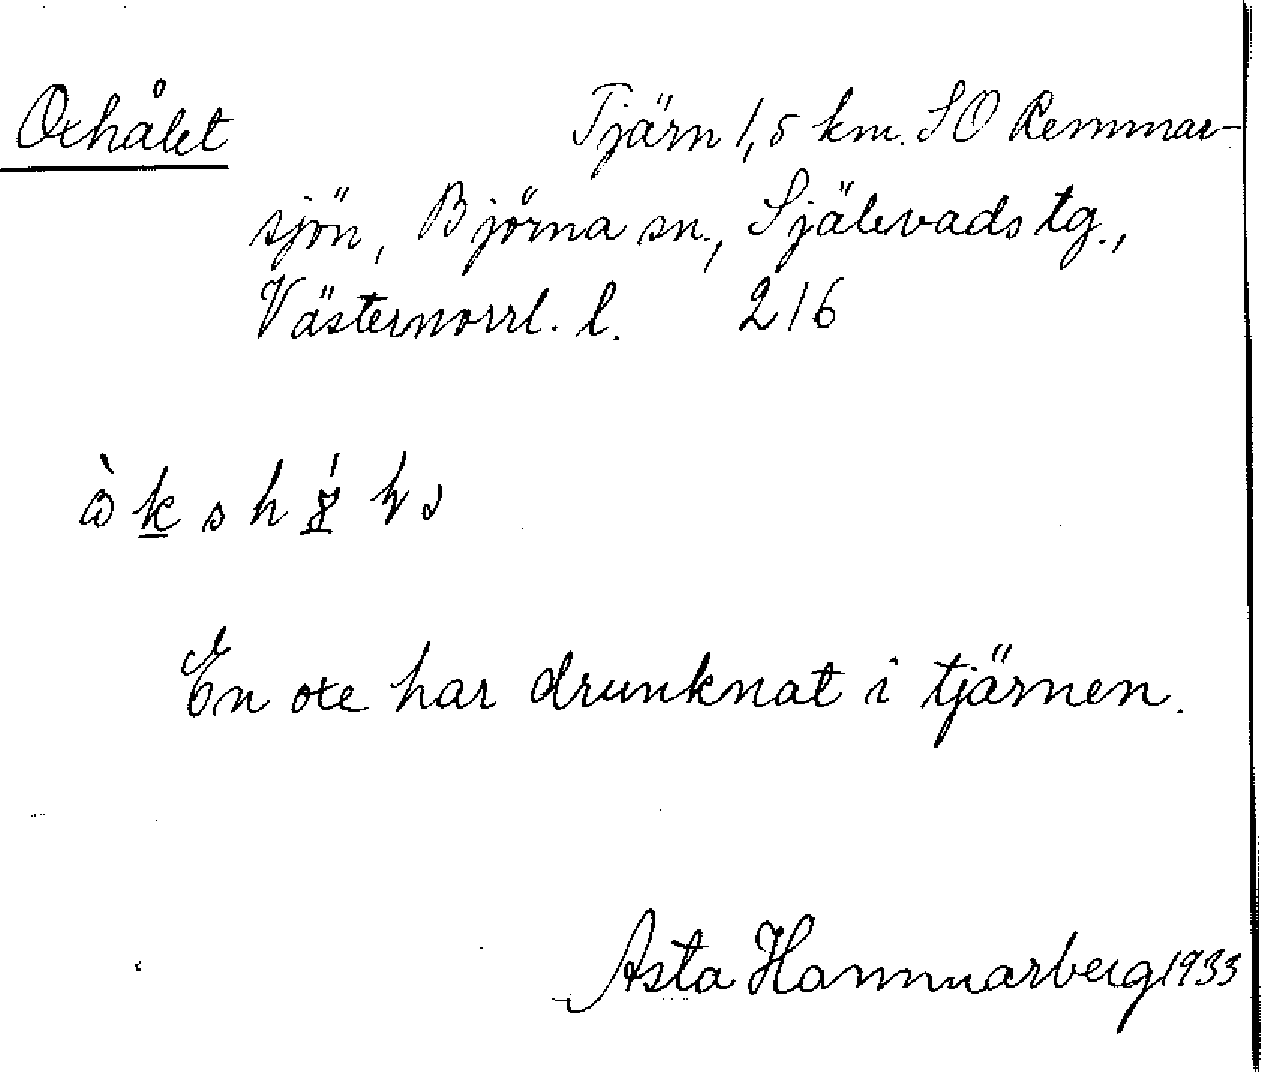 Oxhålet Tjärn 1,5 km. SO Remmar-
sjön, Björna sn., Själevads tg.,
Västernorrl. l. 216
En oxe har drunknat i tjärnen.
Asta Hammarberg 1933